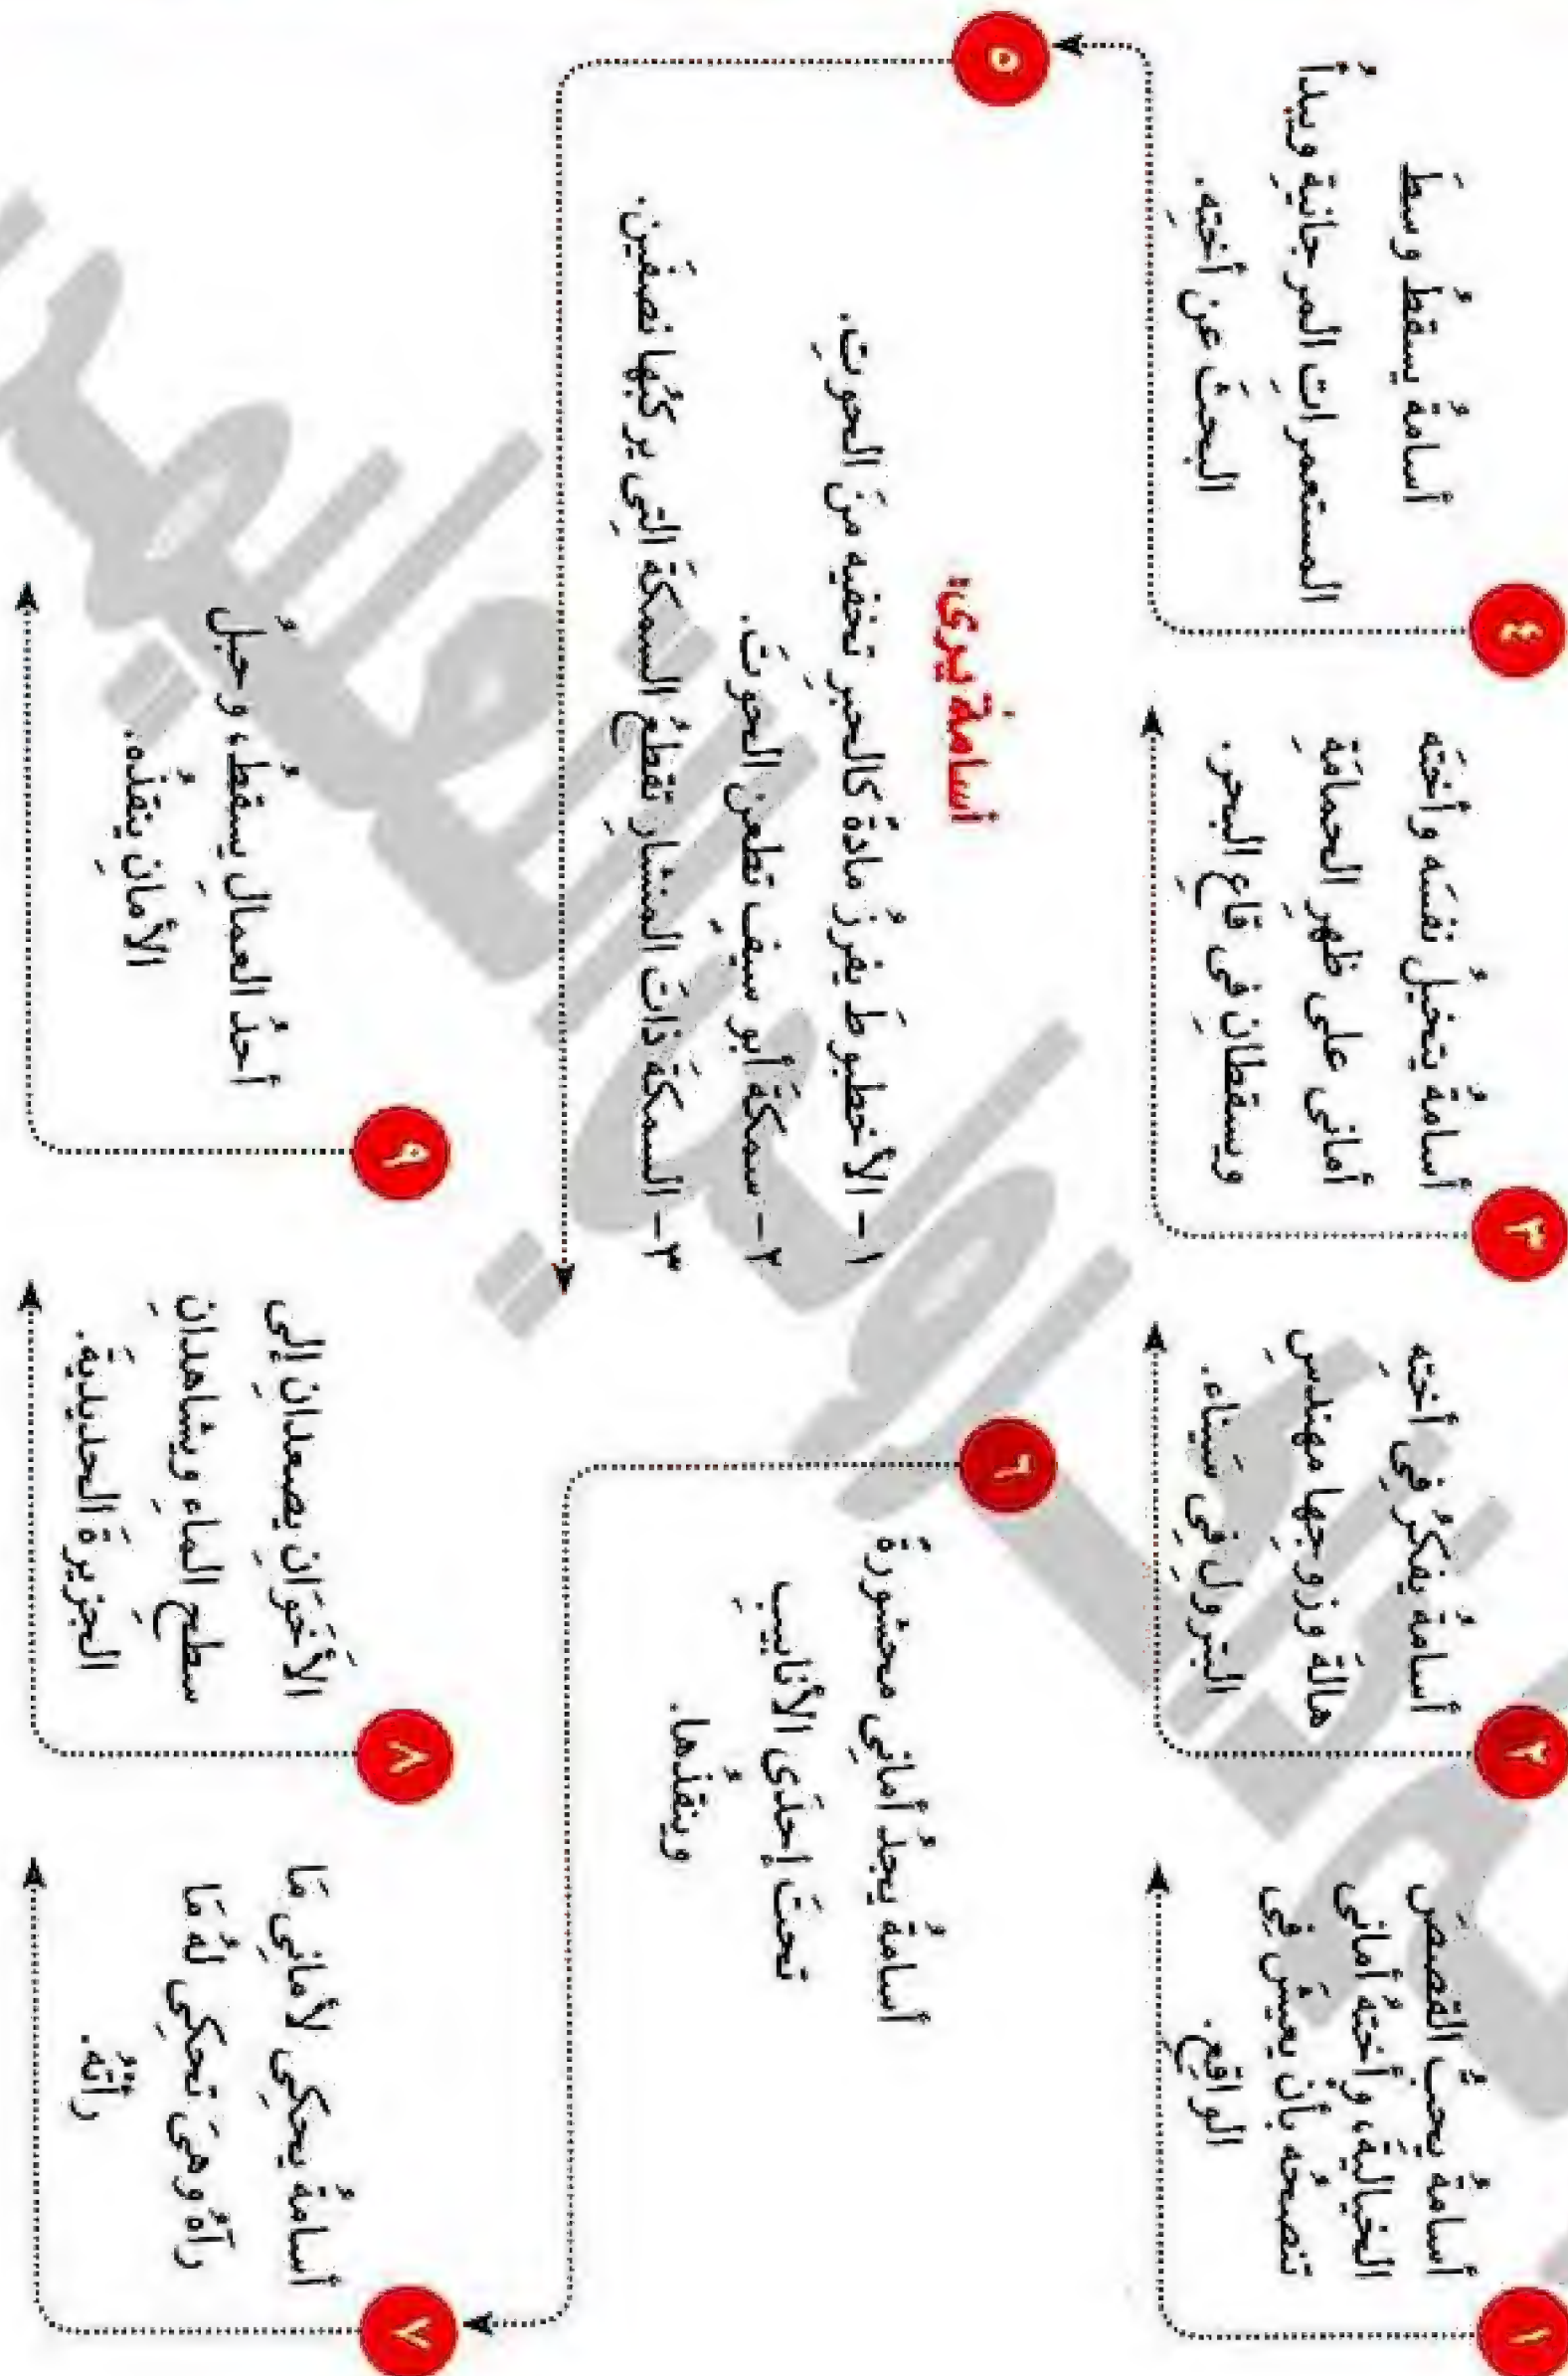 ١
أسامةُ يحبُّ القصصَ
الخياليةَ، وأختُهُ أمانى
تنصحُه بأن يعيشَ فِى
الواقِعِ.
٢
أسامةُ يفكرُ فِى أختِهِ
هالةَ وزوجِها مهندسِ
البترولِ فِى سَيناء.
٣
أسامةُ يتخيلُ نفسَه وأختَه
أمانى على ظهرِ الحمامَةِ
ويسقطانِ فى قاعِ البحرِ.
٤
أسامةُ يسقطُ وسطَ
المستعمراتِ المرجانيةِ ويبدأُ
البحثَ عن أختِهِ.
٥
أسامةُ يرى:
١- الأخطبوطَ يفرزُ مادةً كالحبرِ تخفيه منَ الحوتِ.
٢- سمكةَ أبو سيفِ تطعن الحوتَ.
٣- السمكةَ ذاتَ المنشارِ تقطعُ السمكةَ التِى يركبُها نصفَينِ.
٦
أسامةُ يجدُ أمانِى محشورةً
تحتَ إحدَى الأنابيبِ
وينقذُها.
٧
أسامةُ يحكِى لأمانِى مَا
رآهُ وهىَ تحكِى لهُ مَا
رأتْهُ.
٨
الأَخَوَانِ يصعدانِ إلى
سطحِ الماءِ ويشاهدانِ
الجزيرةَ الحديديةَ.
٩
أحدُ العمالِ يسقطُ، وحبلُ
الأمانِ ينقذُه.